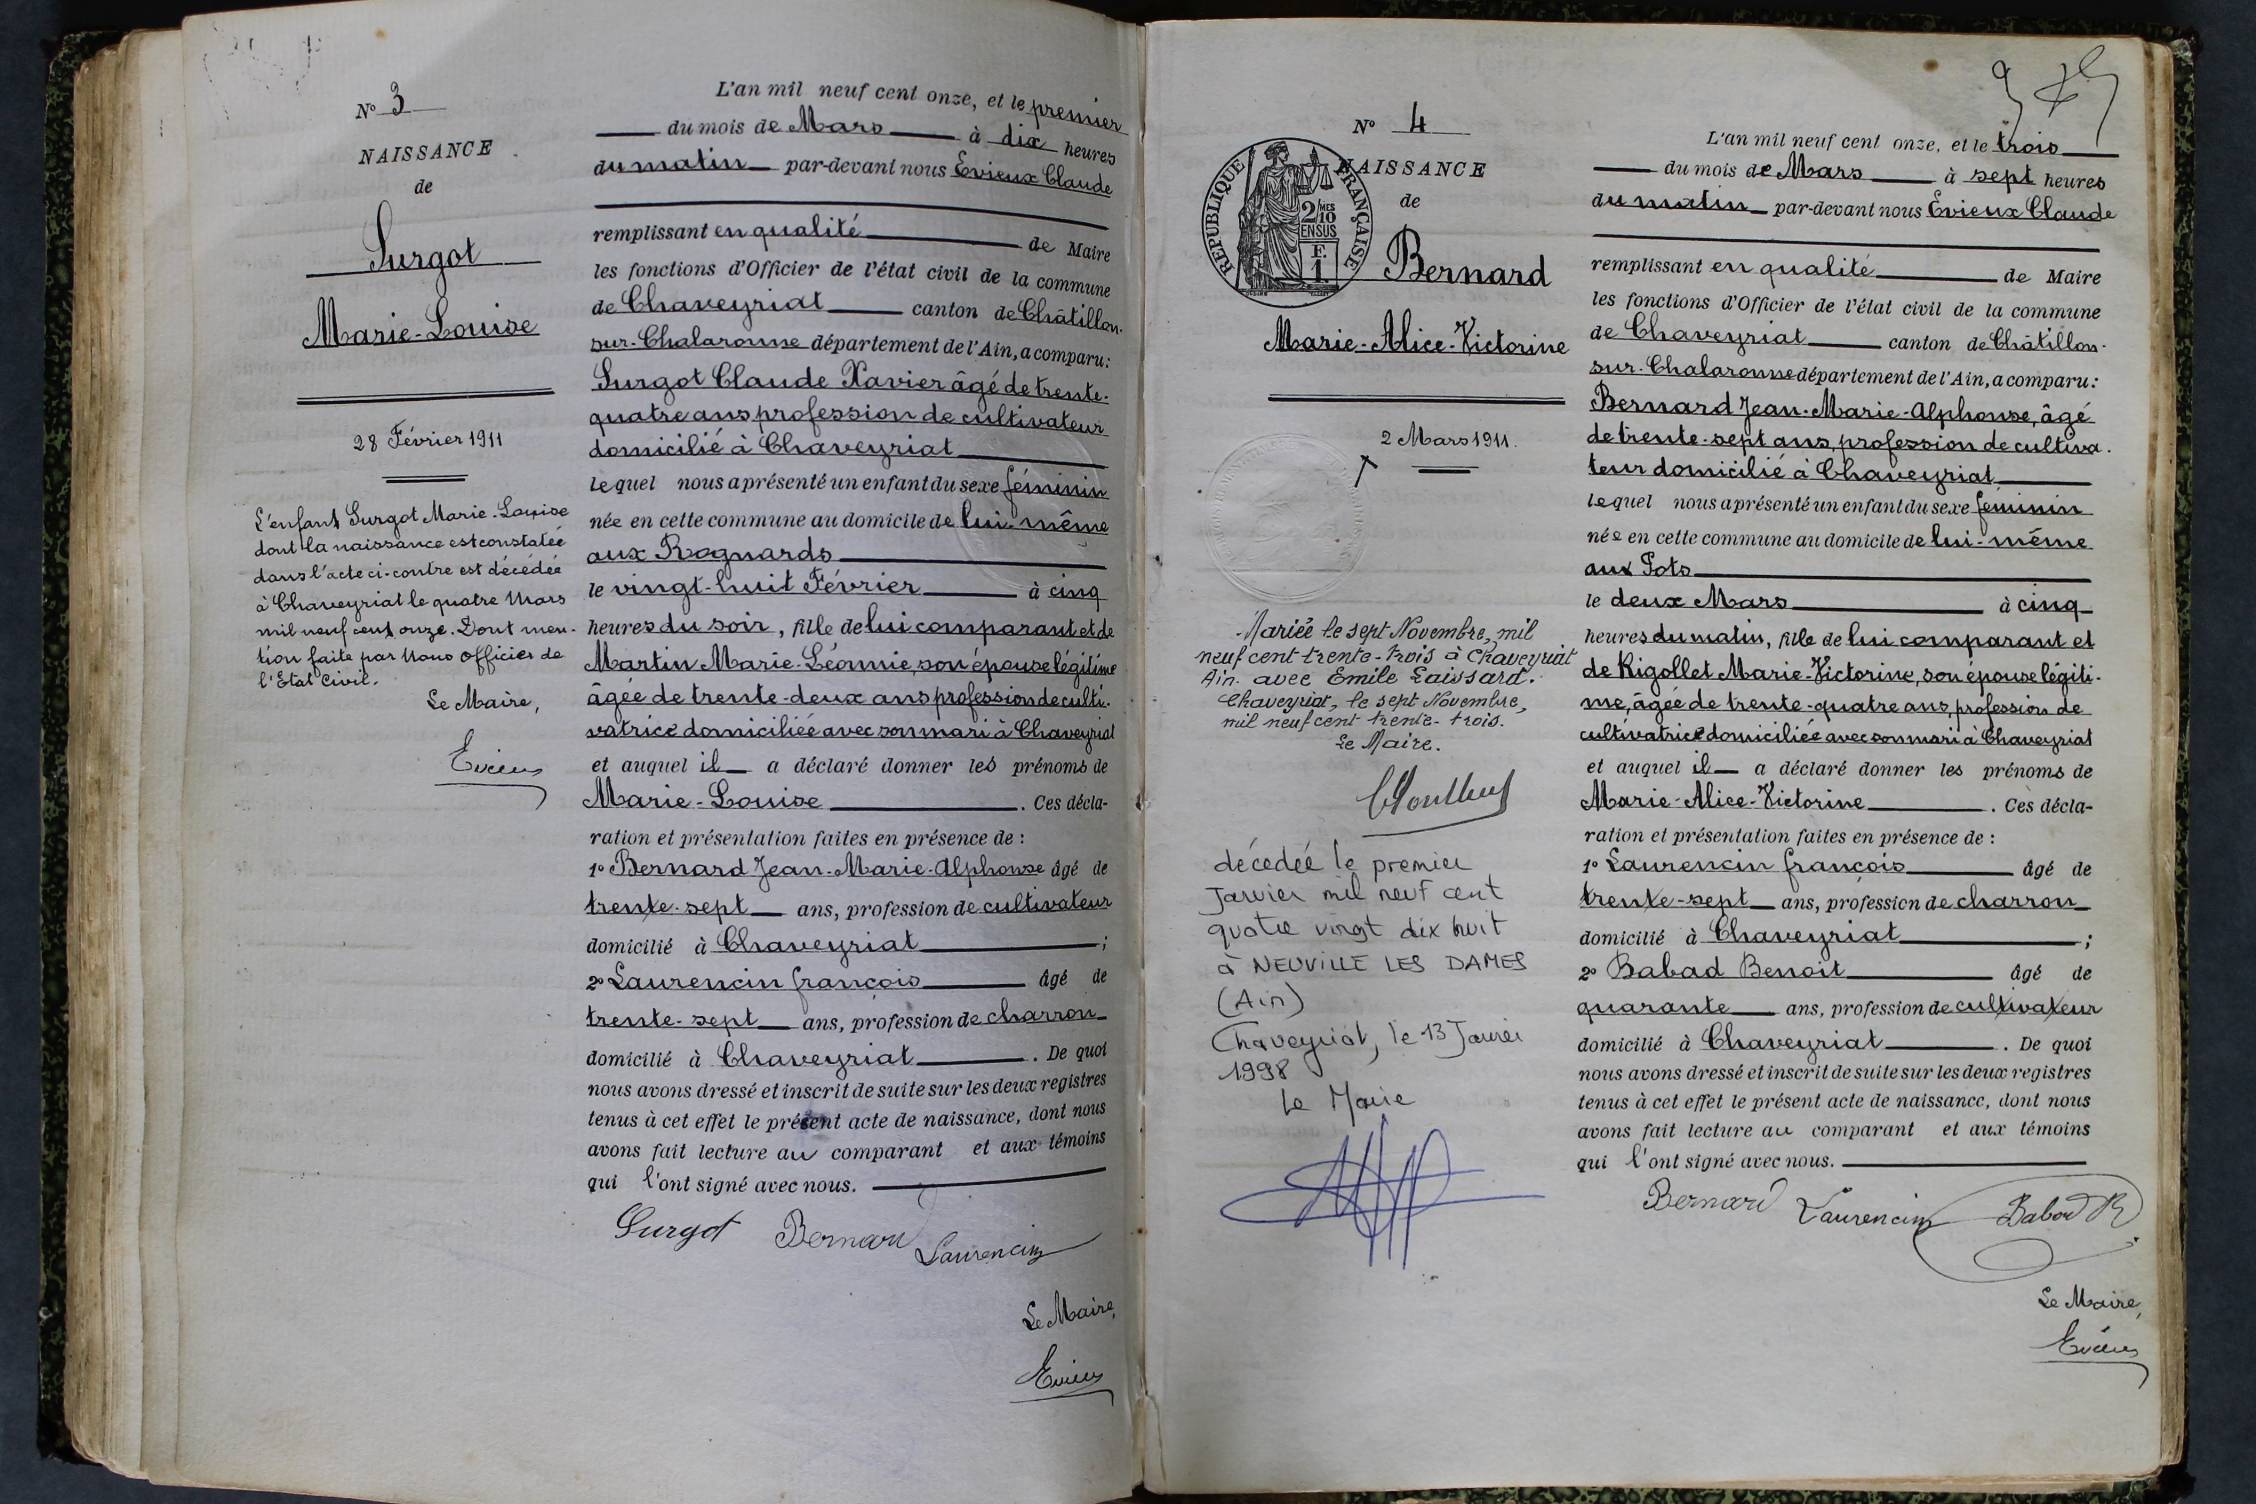 N° 3
NAISSANCE
de
Surgot
Marie-Louise
28 Février 1911
L'enfant Surgot Marie-Louise
dont la naissance est constatée
dans l'acte ci-contre est décédée
à Chaveyriat le quatre Mars
mil neuf cent onze. Dont men-
tion faite par Nous officier de
l'Etat Civil.
Le Maire,
Evieux
L'an mil neuf cent onze, et le premier
du mois de Mars à dix heures
du matin par-devant nous Evieux Claude
remplissant en qualité de Maire
les fonctions d'Officier de l'état civil de la commune
de Chaveyriat canton de Châtillon-
sur-Chalaronne département de l'Ain, a comparu:
Surgot Claude Xavier âgé de trente-
quatre ans, profession de cultivateur
domicilié à Chaveyriat
lequel nous a présenté un enfant du sexe féminin
née en cette commune au domicile de lui-même
aux Rognards
le vingt-huit Février à cinq
heures du soir, fille de lui comparant et de
Martin Marie-Léonnie, son épouse légitime
âgée de trente-deux ans profession de culti-
vatrice domiciliée avec son mari à Chaveyriat
et auquel il a déclaré donner les prénoms de
Marie-Louise . Ces décla-
ration et présentation faites en présence de :
1° Bernard Jean-Marie-Alphonse âgé de
trente-sept ans, profession de cultivateur
domicilié à Chaveyriat ;
2° Laurencin françois âgé de
trente-sept ans, profession de charron
domicilié à Chaveyriat . De quoi
nous avons dressé et inscrit de suite sur les deux registres
tenus à cet effet le présent acte de naissance, dont nous
avons fait lecture au comparant et aux témoins
qui l'ont signé avec nous.
Surgot Bernard Laurencin
Le Maire,
Evieux
N° 4
NAISSANCE
de
RÉPUBLIQUE FRANÇAISE
2/10 MES
EN SUS
F.
1
Bernard
Marie-Alice-Victorine
2 Mars 1911.
Mariée le sept Novembre, mil
neuf cent trente-trois à Chaveyriat
Ain. avec Emile Laissard.
Chaveyriat, le sept Novembre,
mil neuf cent trente-trois.
Le Maire.
décédée le premier
Janvier mil neuf cent
quatre vingt dix huit
à NEUVILLE LES DAMES
(Ain)
Chaveyriat, le 13 Janvier
1998
Le Maire
L'an mil neuf cent onze, et le trois
du mois de Mars à sept heures
du matin par-devant nous Evieux Claude
remplissant en qualité de Maire
les fonctions d'Officier de l'état civil de la commune
de Chaveyriat canton de Châtillon-
sur-Chalaronne département de l'Ain, a comparu:
Bernard Jean-Marie-Alphonse, âgé
de trente-sept ans, profession de cultiva-
teur domicilié à Chaveyriat
lequel nous a présenté un enfant du sexe féminin
née en cette commune au domicile de lui-même
aux Pots
le deux Mars à cinq
heures du matin, fille de lui comparant et
de Rigollet Marie-Victorine, son épouse légiti-
me, âgée de trente-quatre ans, profession de
cultivatrice domiciliée avec son mari à Chaveyriat
et auquel il a déclaré donner les prénoms de
Marie-Alice-Victorine . Ces décla-
ration et présentation faites en présence de :
1° Laurencin françois âgé de
trente-sept ans, profession de charron
domicilié à Chaveyriat ;
2° Babad Benoit âgé de
quarante ans, profession de cultivateur
domicilié à Chaveyriat . De quoi
nous avons dressé et inscrit de suite sur les deux registres
tenus à cet effet le présent acte de naissance, dont nous
avons fait lecture au comparant et aux témoins
qui l'ont signé avec nous.
Bernard Laurencin Babad B
Le Maire,
Evieux